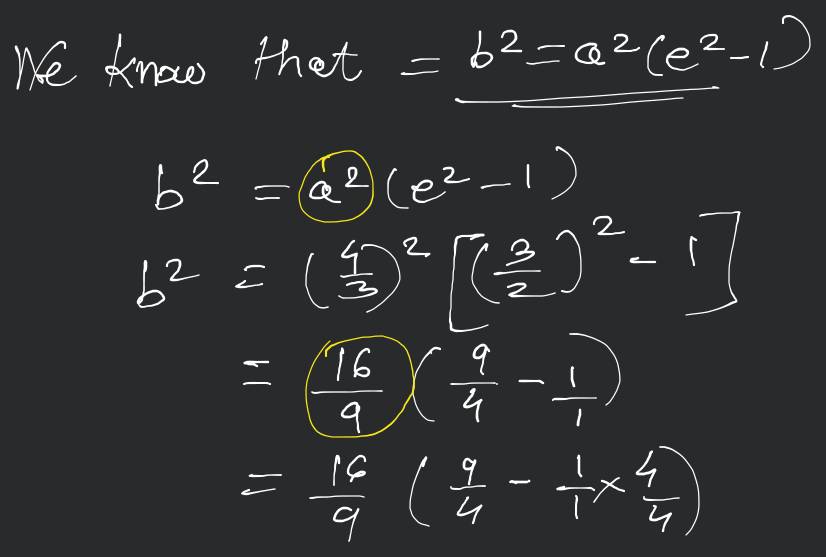 We know that = b² = a²(e²-1)
b² = a²(e²-1)
b² = (4/3)² [(3/2)² - 1]
= 16/9 (9/4 - 1/1)
= 16/9 (9/4 - 1/1 × 4/4)